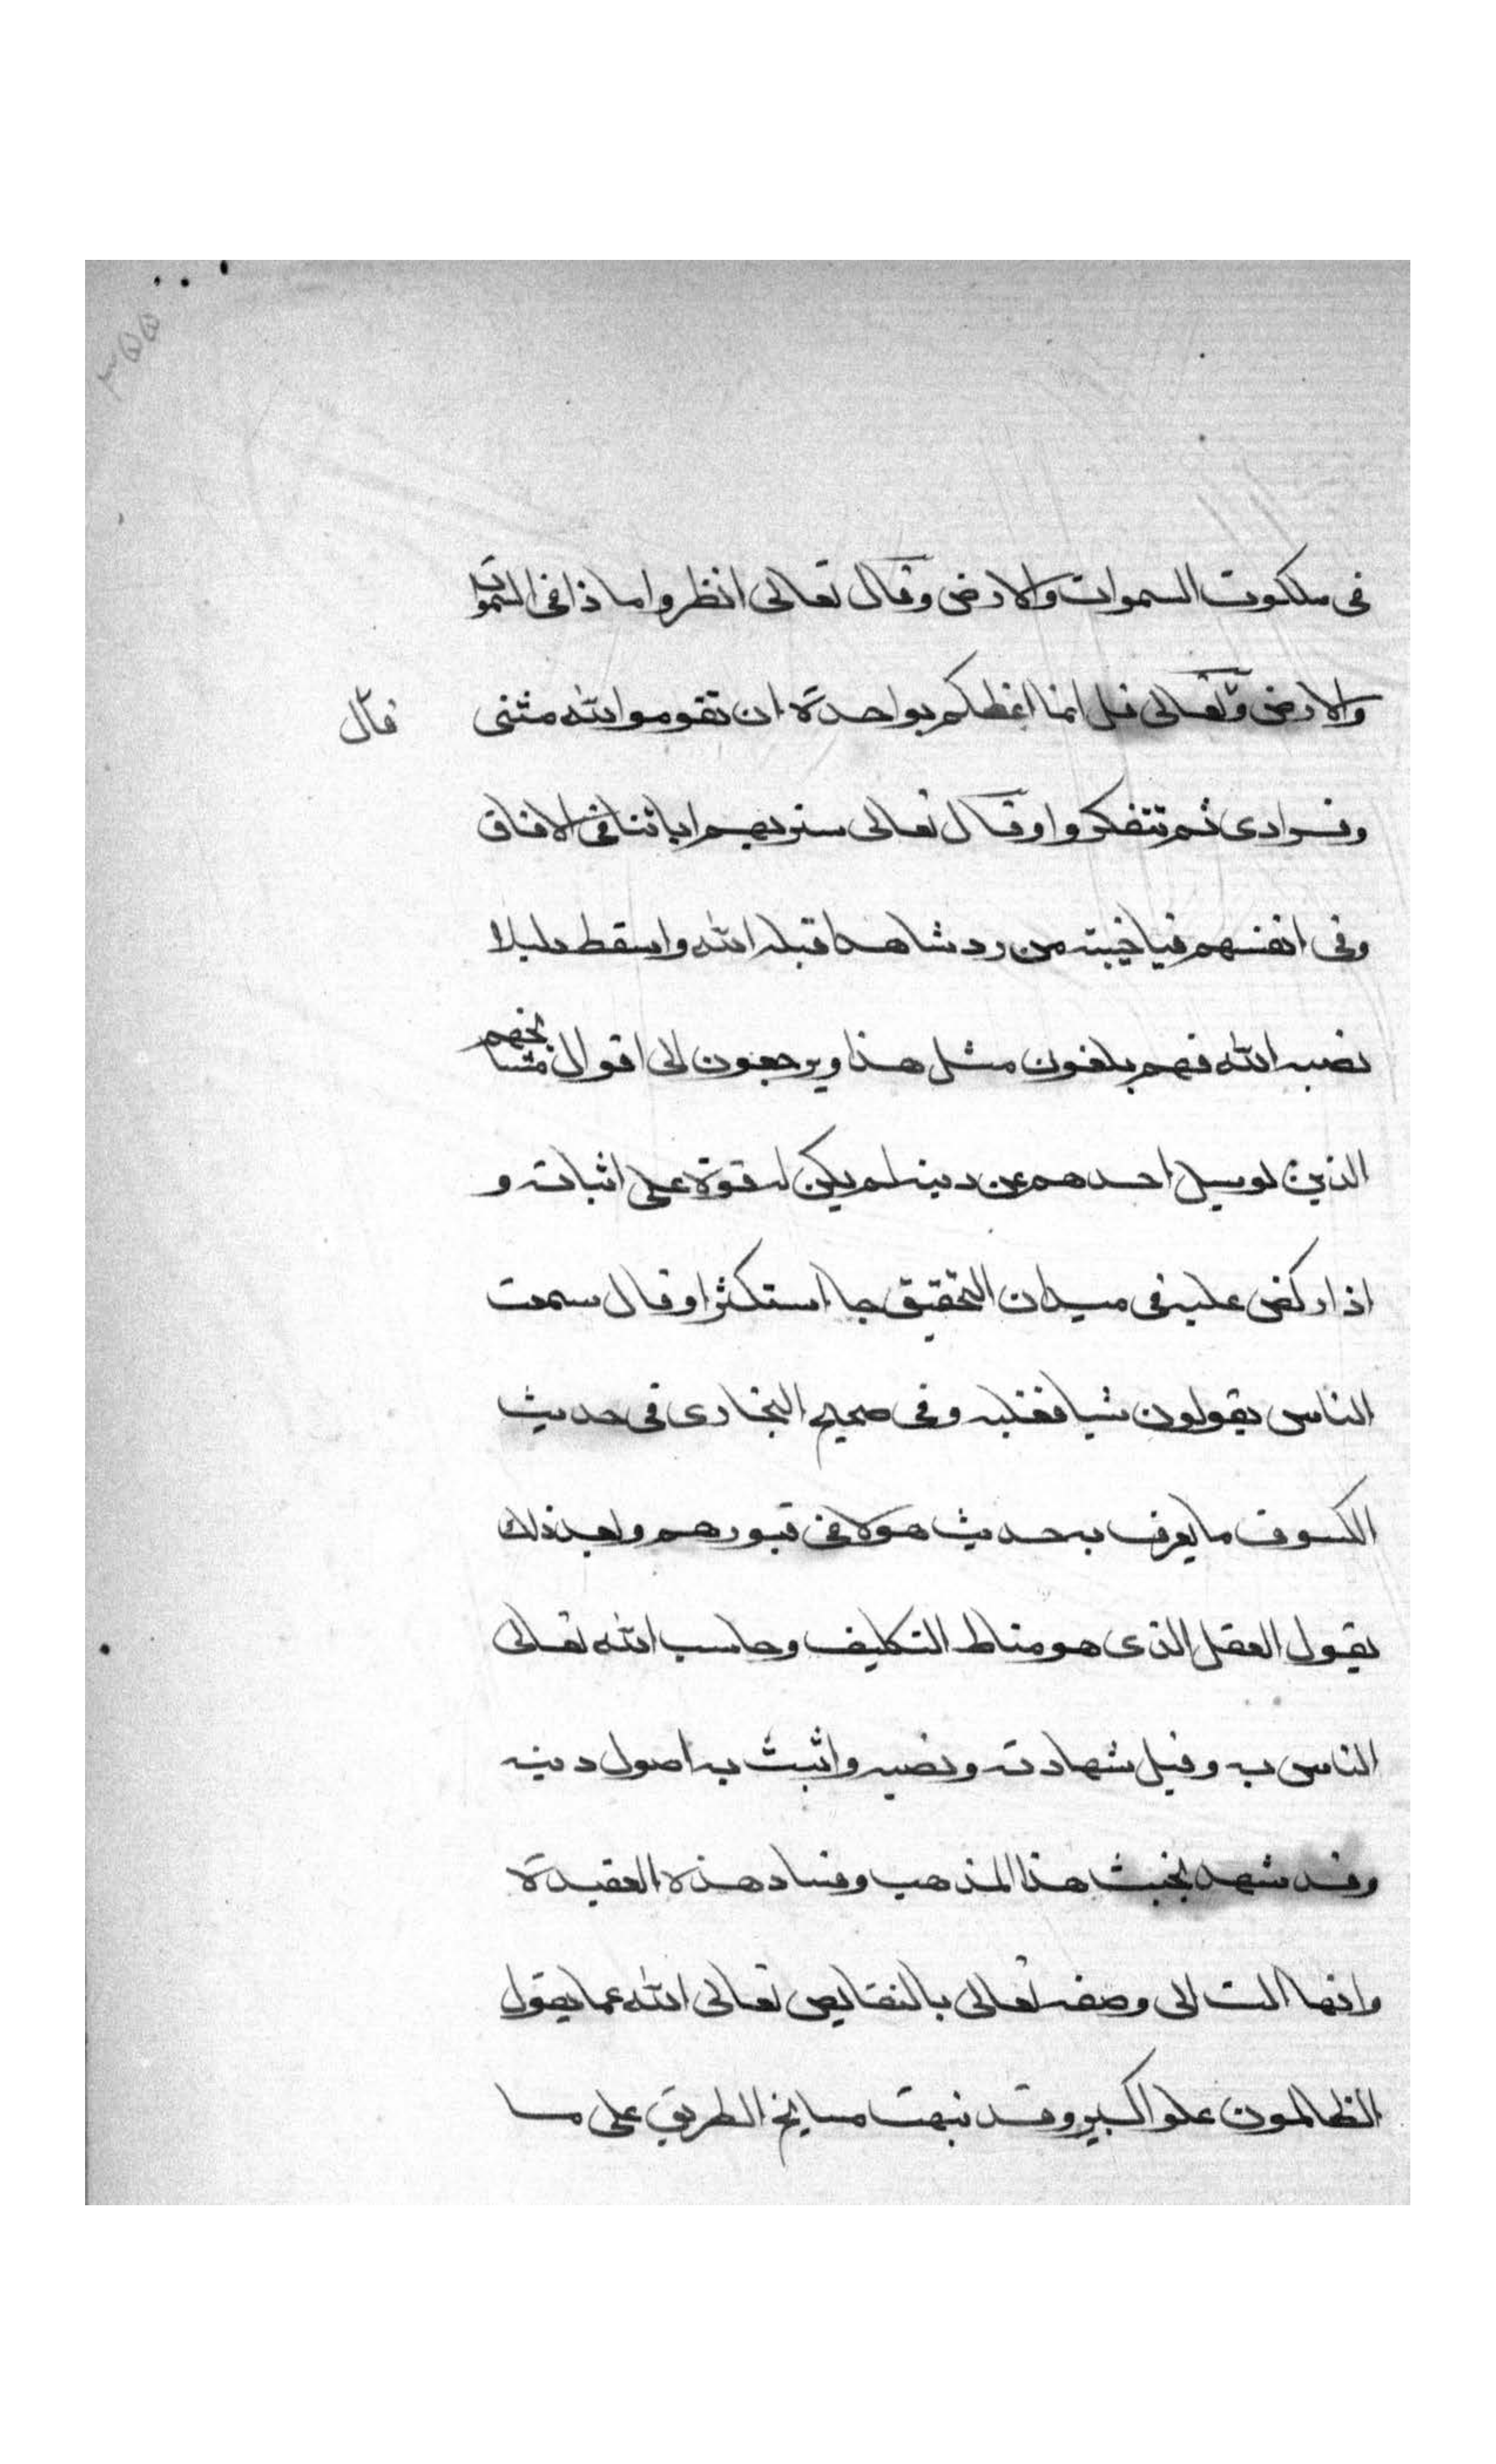 ٣٥٥
في ملكوت السموات والارض وقال تعالى انظروا ماذا في السموات
والارض وتعالى قل انما اعظكم بواحدة ان تقوموا لله مثنى
قال
وفرادى ثم تتفكروا وقال تعالى سنريهم اياتنا في الافاق
وفي انفسهم فيا خيبته من رد شاهدا قبله الله واسقط دليلا
نصبه الله فهم يلغون مثل هذا ويرجعون الى اقوال مشايخهم
الذين لو سيل احدهم عن دينه لم يكن له قوة على اثباته و
اذا ركض عليه في ميدان التحقيق جا استكثرا وقال سمعت
الناس يقولون شيا فقلته وفي صحيح البخاري في حديث
الكسوف ما يعرف به حديث هولا في قبورهم وبعد ذلك
يقول العقل الذي هو مناط التكليف وحاسب الله تعالى
الناس به وقبل شهادته ونصبه واثبت به اصول دينه
وقد شهد بخبث هذا المذهب وفساد هذه العقيدة
وانها الت الى وصفه تعالى بالنقايص تعالى الله عما يقول
الظالمون علوا كبيرا وقد نبهت مشايخ الطريق على ما